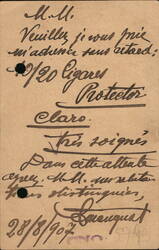 M.M.
Veuillez je vous prie
m'adresser sans retard:
1/20 Cigares
Protector
Claro.
très soignés
Dans cette attente
agréez, M.M. mes salutations
très distinguées,
28/8/907